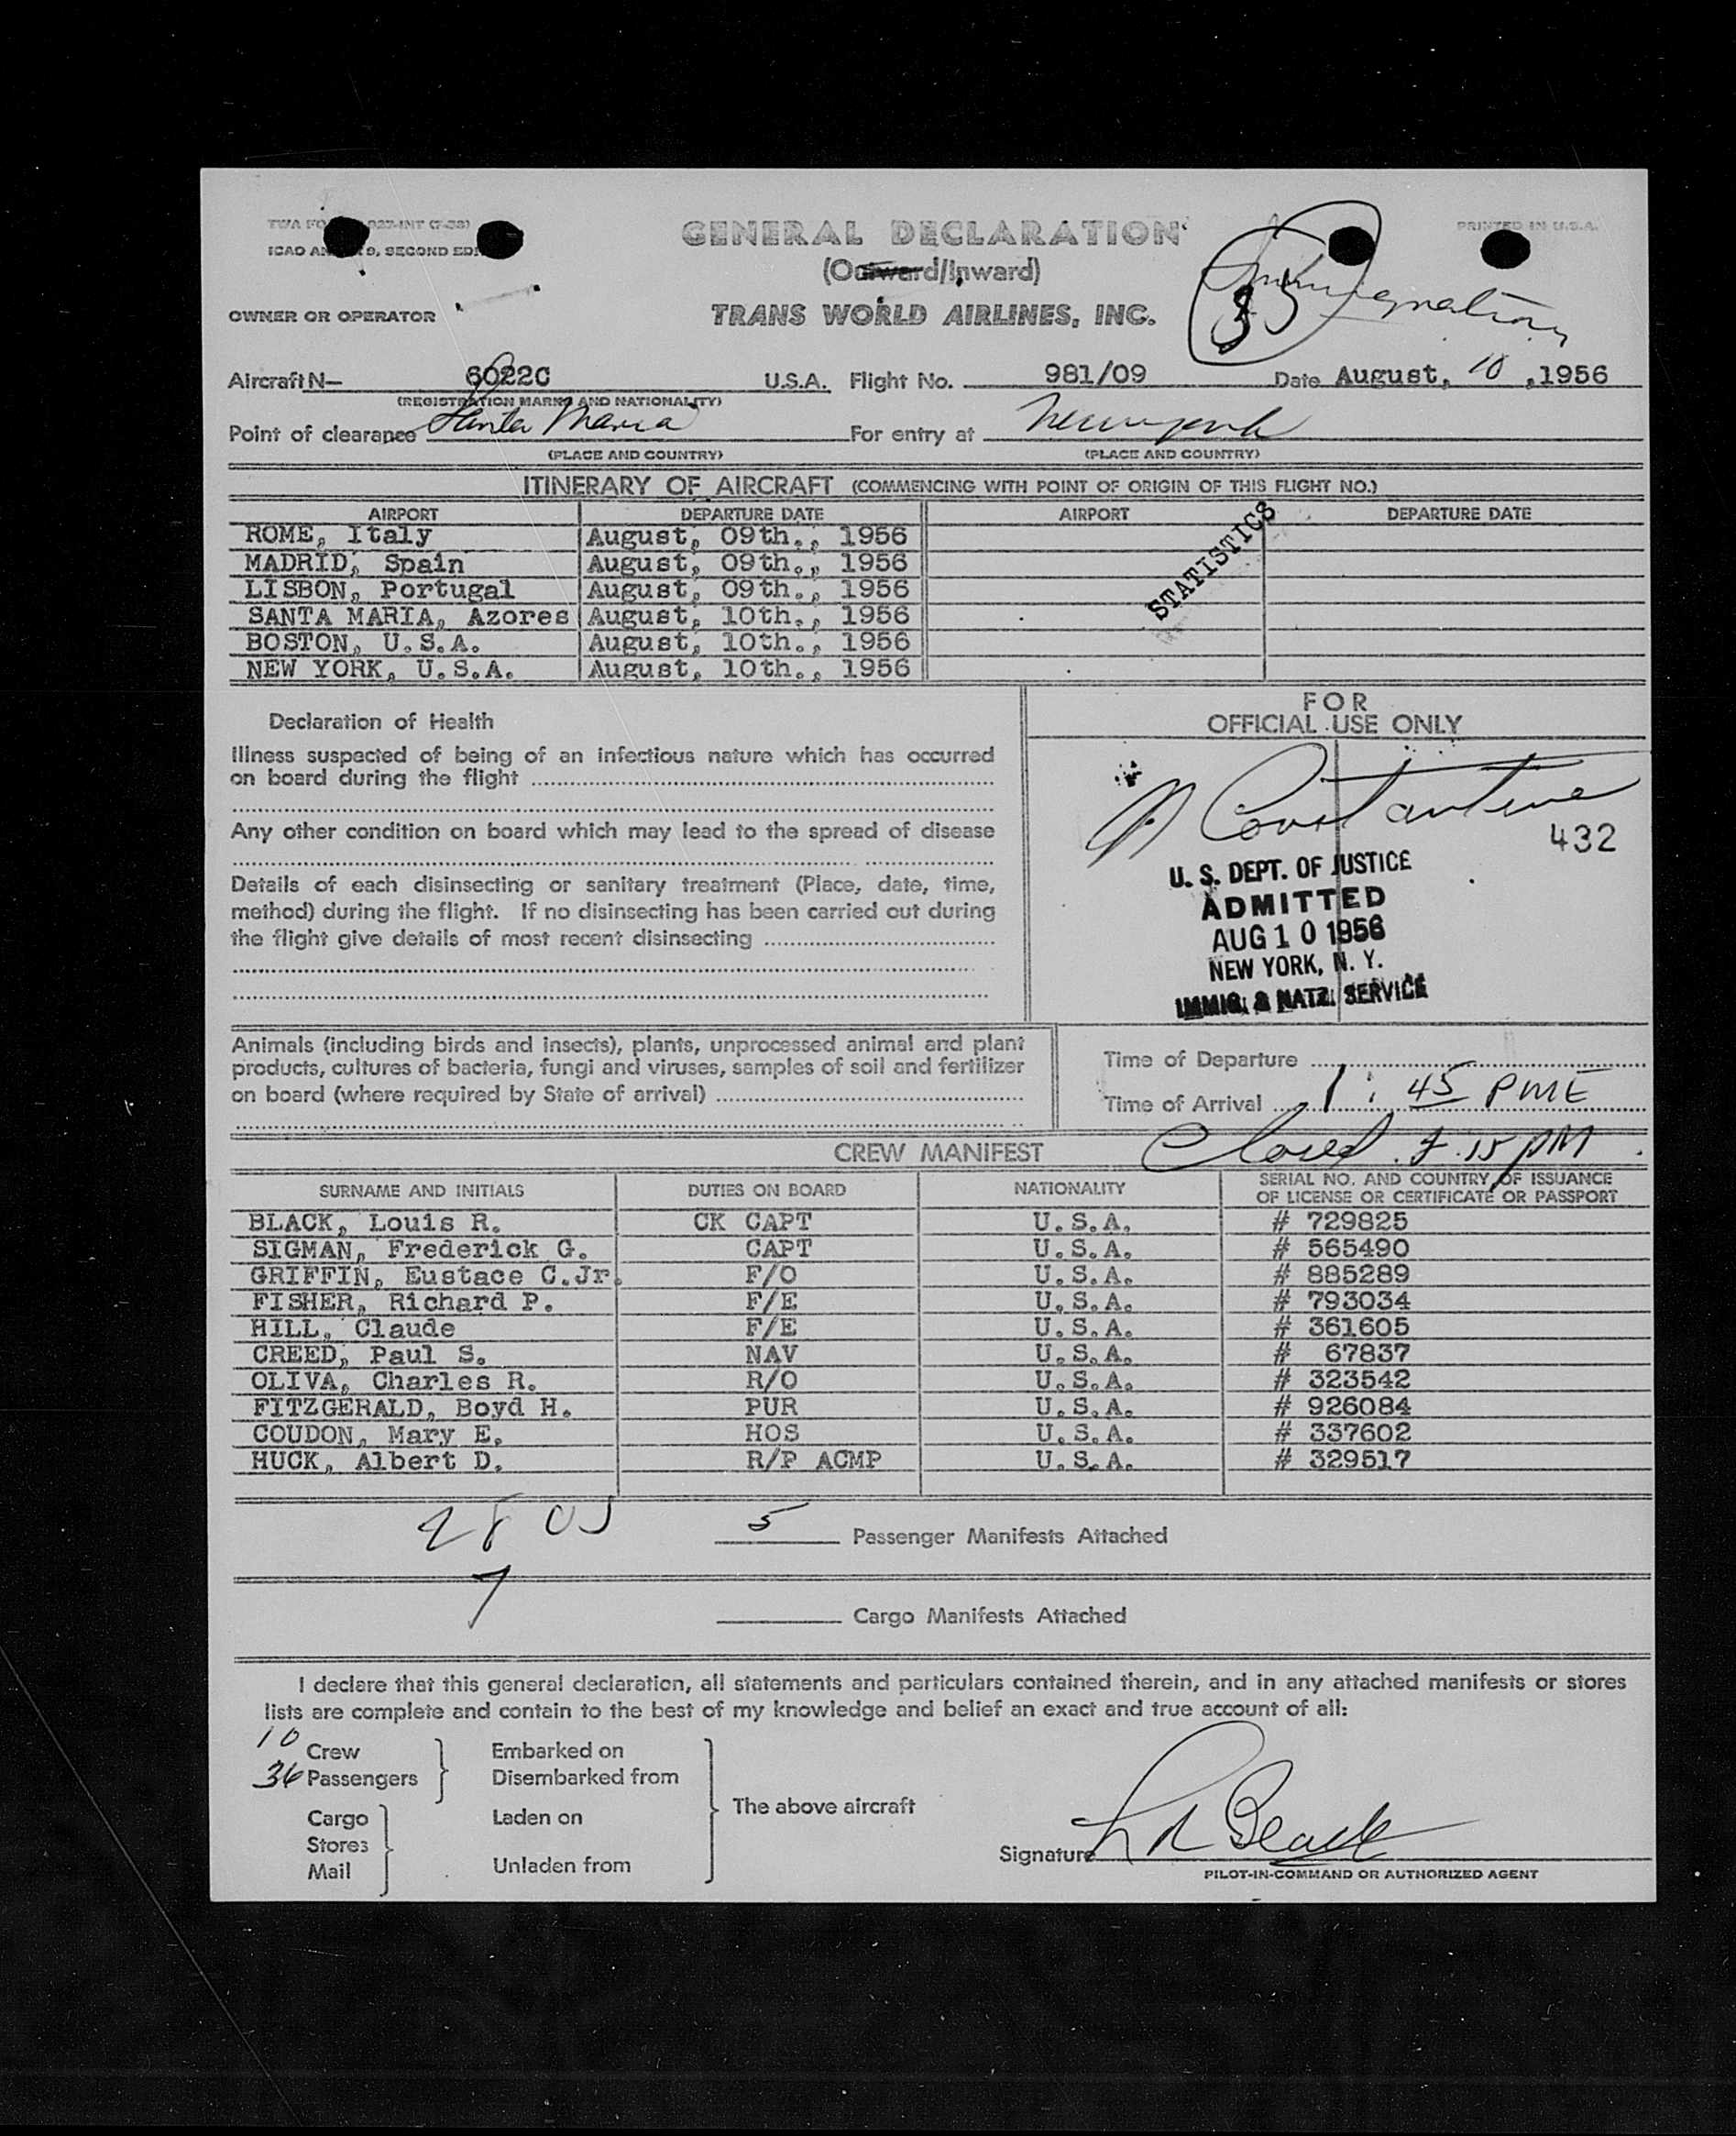 GENERAL DECLARATION
PRINTED IN U.S.A.
ICAO AN 9, SECOND EDI
(Outward/Inward)
Immigration
OWNER OR OPERATOR
TRANS WORLD AIRLINES, INC.
Aircraft N— 6022C U.S.A. Flight No. 981/09 Date August, 10 ,1956
(REGISTRATION MARKS AND NATIONALITY)
Point of clearance Santa Maria For entry at New York
(PLACE AND COUNTRY) (PLACE AND COUNTRY)
ITINERARY OF AIRCRAFT (COMMENCING WITH POINT OF ORIGIN OF THIS FLIGHT NO.)
AIRPORT DEPARTURE DATE AIRPORT DEPARTURE DATE
ROME, Italy August, 09th., 1956
MADRID, Spain August, 09th., 1956
LISBON, Portugal August, 09th., 1956
SANTA MARIA, Azores August, 10th., 1956
BOSTON, U.S.A. August, 10th., 1956
NEW YORK, U.S.A. August, 10th., 1956
STATISTICS
Declaration of Health
Illness suspected of being of an infectious nature which has occurred
on board during the flight
Any other condition on board which may lead to the spread of disease
Details of each disinsecting or sanitary treatment (Place, date, time,
method) during the flight. If no disinsecting has been carried out during
the flight give details of most recent disinsecting
FOR
OFFICIAL USE ONLY
Constantine
432
U. S. DEPT. OF JUSTICE
ADMITTED
AUG 10 1956
NEW YORK, N. Y.
IMMIG. & NATZ. SERVICE
Animals (including birds and insects), plants, unprocessed animal and plant
products, cultures of bacteria, fungi and viruses, samples of soil and fertilizer
on board (where required by State of arrival)
Time of Departure
Time of Arrival 1:45 PME
Closed 15 PM
CREW MANIFEST
SURNAME AND INITIALS DUTIES ON BOARD NATIONALITY SERIAL NO. AND COUNTRY OF ISSUANCE
OF LICENSE OR CERTIFICATE OR PASSPORT
BLACK, Louis R. CK CAPT U.S.A. # 729825
SIGMAN, Frederick G. CAPT U.S.A. # 565490
GRIFFIN, Eustace C.Jr. F/O U.S.A. # 885289
FISHER, Richard P. F/E U.S.A. # 793034
HILL, Claude F/E U.S.A. # 361605
CREED, Paul S. NAV U.S.A. # 67837
OLIVA, Charles R. R/O U.S.A. # 323542
FITZGERALD, Boyd H. PUR U.S.A. # 926084
COUDON, Mary E. HOS U.S.A. # 337602
HUCK, Albert D. R/P ACMP U.S.A. # 329517
5 Passenger Manifests Attached
7
Cargo Manifests Attached
I declare that this general declaration, all statements and particulars contained therein, and in any attached manifests or stores
lists are complete and contain to the best of my knowledge and belief an exact and true account of all:
10 Crew
36 Passengers
Embarked on
Disembarked from
Cargo
Stores
Mail
Laden on
Unladen from
The above aircraft
Signature L R Black
PILOT-IN-COMMAND OR AUTHORIZED AGENT